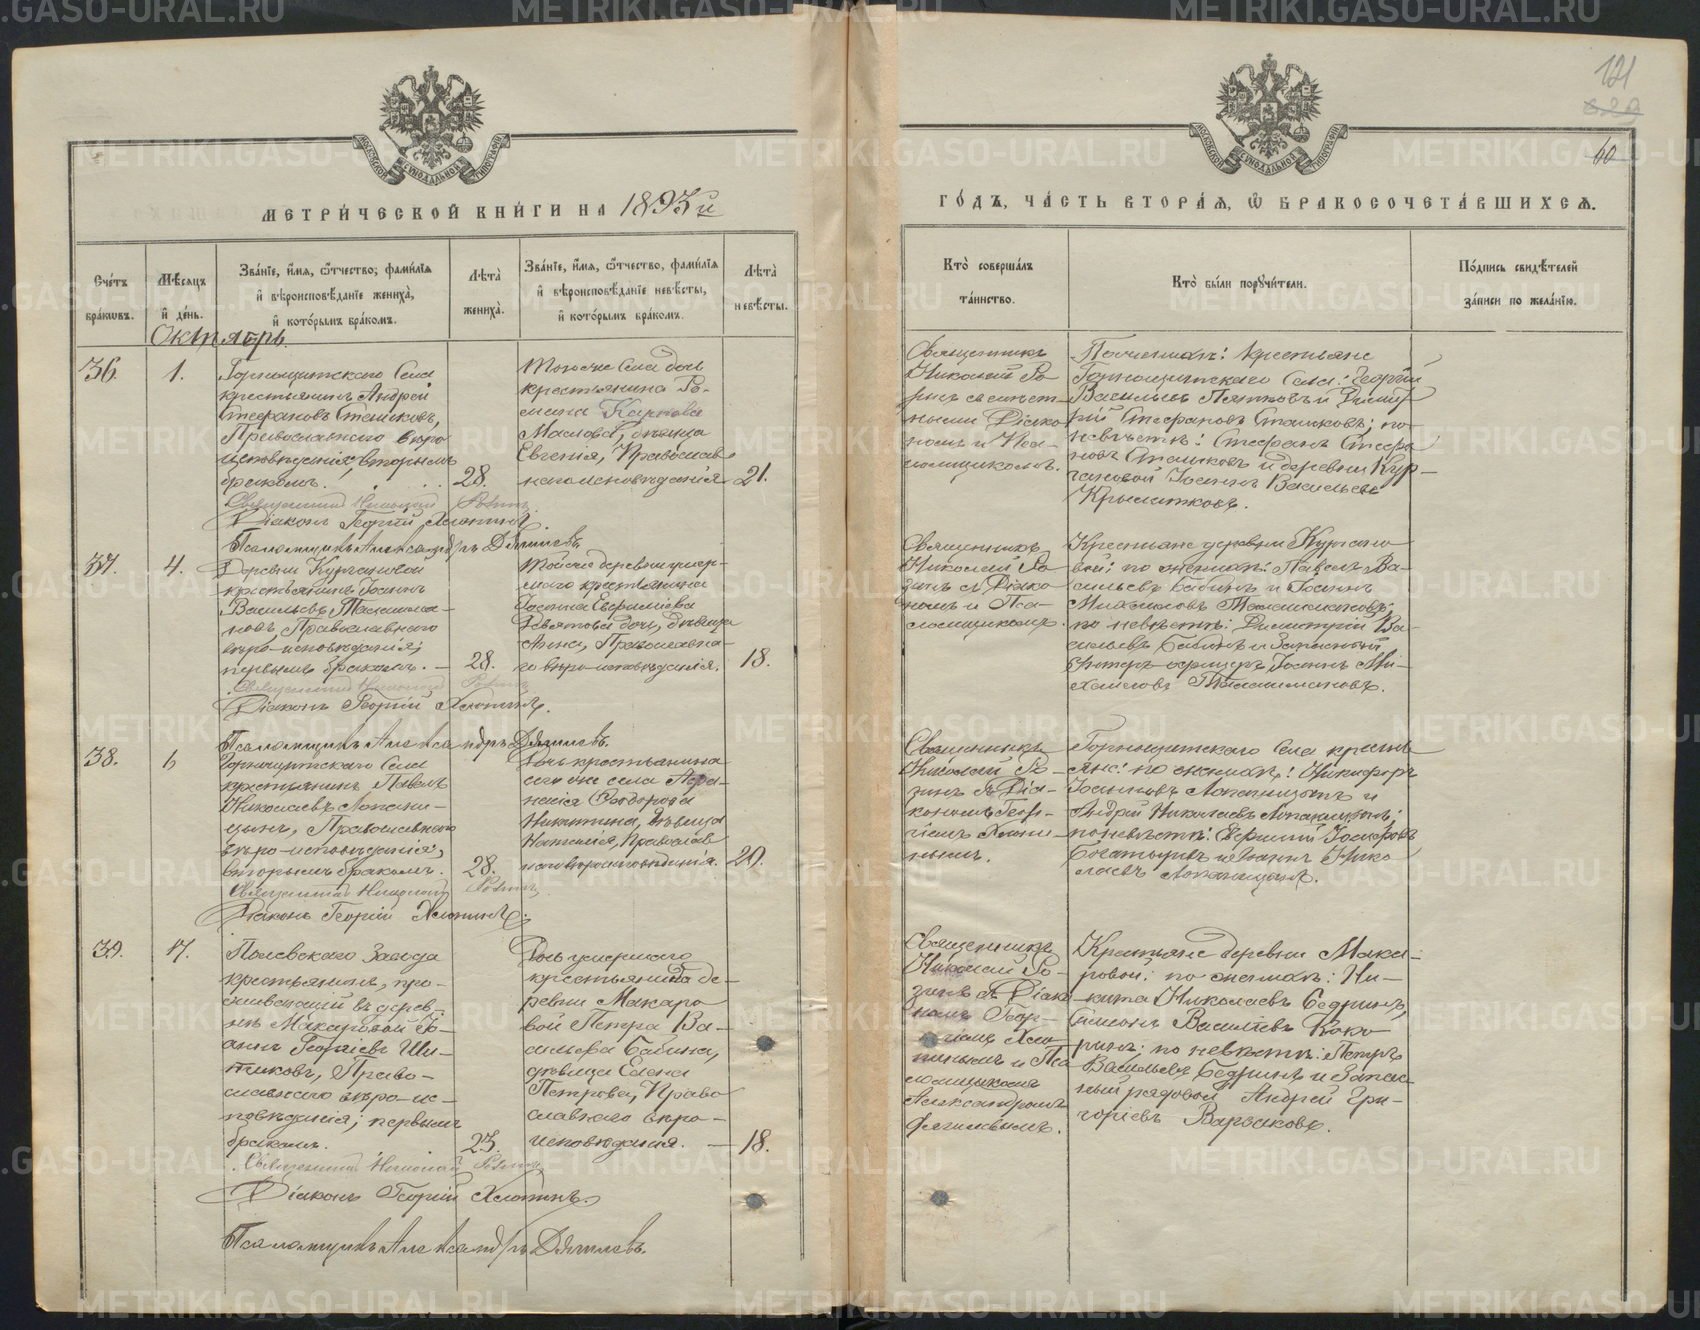 МЕТРИ́ЧЕСКОЙ КНИ́ГИ НА 1893й
Сче́тъ бра́кѡвъ.
Мѣ́сяцъ и҆ де́нь.
Зва́нїе, и҆́мя, ѻ҆́тчество, фамѝлїя и҆ вѣроисповѣ́данїе жениха̀, и҆ кото́рымъ бра́комъ.
Лѣта̀ жениха̀.
Зва́нїе, и҆́мя, ѻ҆́тчество, фамѝлїя и҆ вѣроисповѣ́данїе невѣ́сты, и҆ кото́рымъ бра́комъ.
Лѣта̀ невѣ́сты.
Октябрь
36. 1.
Горнощитскаго Села
крестьянинъ Андрей
Стефановъ Сташковъ,
Православнаго вѣро
исповѣданія, вторымъ
бракомъ.
28.
Тогоже Села дочь
крестьянина Ро-
мана Карпова
Маслова, дѣвица
Евгенія, Православ
наго исповѣданія
21.
Священникъ Николай Розинъ
Діаконъ Георгій Хлопинъ.
Псаломщикъ Александръ Дягилевъ
37. 4.
Деревни Кургановой
крестьянинъ Іоаннъ
Православнаго
вѣро-исповѣданія;
первымъ бракомъ.
28.
Тойже деревни умер-
шаго крестьянина
Девятова дочь, дѣвица
Анна, Православна-
го вѣро-исповѣданія.
18.
Священникъ Николай Розинъ
Діаконъ Георгій Хлопинъ.
Псаломщикъ Александръ Дягилевъ.
38. 6
Горнощитскаго Села
крестьянинъ Павелъ
Николаевъ Лопани-
цынъ, Православнаго
вѣро-исповѣданія;
вторымъ бракомъ.
28.
Дочь крестьянина
сего же села Афа-
насія Ѳеодорова
Никитина, дѣвица
Наталія, Православ
наго вѣроисповѣданія.
20.
Священникъ Николай Розинъ
Діаконъ Георгій Хлопинъ.
39. 17.
Полевскаго Завода
крестьянинъ, про-
живающій въ дерев-
нѣ Макаровой Іо-
аннъ Георгіевъ Ши-
пиковъ, Право-
славнаго вѣро-ис-
повѣданія; первымъ
бракомъ.
23.
Дочь умершаго
крестьянина де-
ревни Макаро
вой Петра Ва-
сильева Бабина,
дѣвица Елена
Петрова, Право
славнаго вѣро-
исповѣданія.
18.
Священникъ Николай Розинъ
Діаконъ Георгій Хлопинъ.
Псаломщикъ Александръ Дягилевъ.
121
60
ГО́ДЪ, ЧА́СТЬ ВТОРА́Я, Ѽ БРАКОСОЧЕТА́ВШИХСЯ.
Кто̀ соверша́лъ та́инство.
Кто̀ бы́ли порꙋчи́тели.
По́дпись свидѣ́телей за́писи по жела́нїю.
Священникъ
Николай Ро
зинъ съ мѣст-
нымъ Діако
номъ и Пса-
ломщикомъ.
По женихѣ: крестьяне
Горнощитскаго Села: Георгій
Васильевъ Пятковъ и Димит
рій Стефановъ Сташковъ; по
невѣстѣ: Стефанъ Стефа
новъ Сташковъ и деревни Кур-
гановой Іоаннъ Васильевъ
Крылатковъ.
Священникъ
Николай Ро
зинъ съ Діако
номъ и Пса-
ломщикомъ.
Крестьяне деревни Кургано
вой: по женихѣ: Павелъ Ва-
сильевъ Бабинъ и Іоаннъ
по невѣстѣ: Димитрій Ва-
сильевъ Бабинъ и Запасный
Унтеръ-офицеръ Іоаннъ Ми-
хайловъ
Священникъ
Николай Ро-
зинъ съ Діа-
кономъ Геор-
гіемъ Хлопи-
нымъ.
Горнощитскаго Села кресть
яне: по женихѣ: Никифоръ
Іоанновъ Лопаницынъ и
Андрей Николаевъ Лопаницынъ;
по невѣстѣ: Евфимій Іосифовъ
Богатыревъ и Іоаннъ Нико
лаевъ Лопаницынъ.
Священникъ
Николай Ро-
зинъ съ Діако
номъ Геор-
гіемъ Хло-
пинымъ и Пса
ломщикомъ
Александромъ
Дягилевымъ.
Крестьяне деревни Мака-
ровой: по женихѣ: Ни-
кита Николаевъ Бедринъ,
Симеонъ Василіевъ Коко-
ринъ: по невѣстѣ: Петръ
Васильевъ Бедринъ и Запас-
ный рядовой Андрей Гри-
горіевъ Варзаковъ.
METRIKI.GASO-URAL.RU